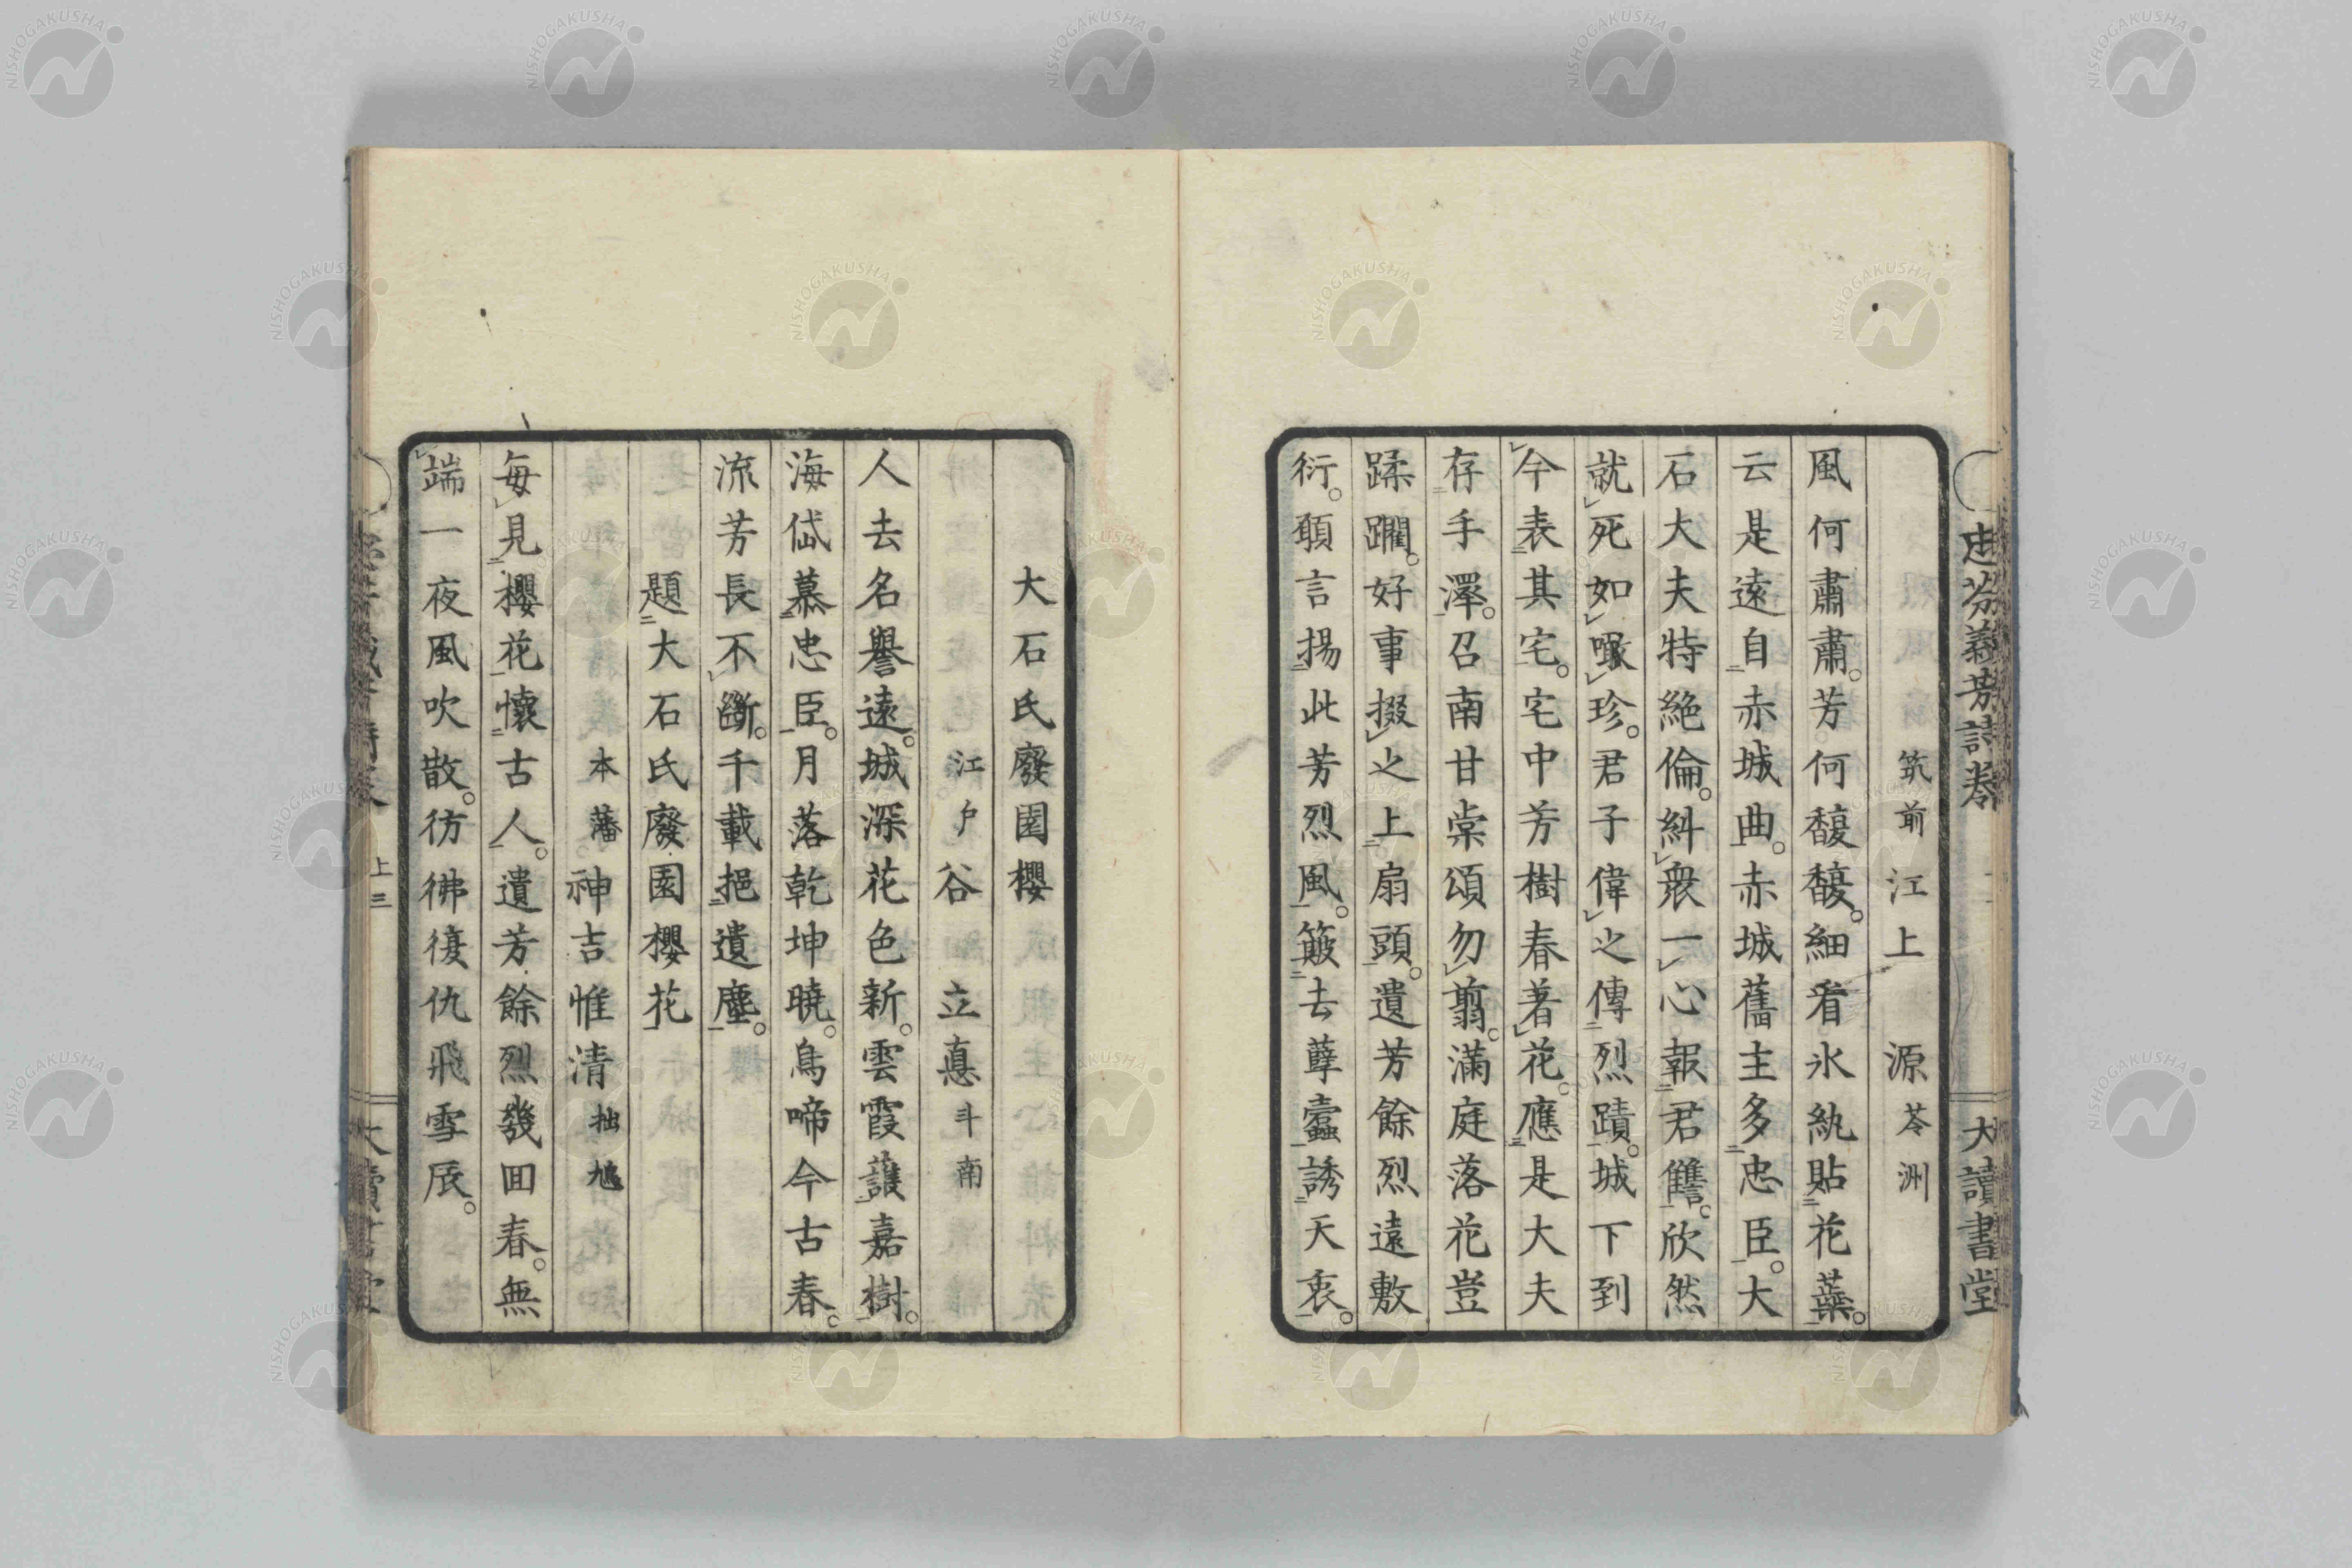 忠芬義芳詩巻
大讀書堂
筑前 江上 源 苓洲
風何肅肅。芳何馥馥。細看氷紈貼花蘂。
云是遠自赤城曲。赤城舊主多忠臣。大
石大夫特絶倫。糾衆一心報君讐。欣然
就死如噉珍。君子偉之傳烈蹟。城下到
今表其宅。宅中芳樹春著花。應是大夫
存手澤。召南甘棠頌勿翦。滿庭落花豈
蹂躙。好事掇之上扇頭。遺芳餘烈遠敷
衍。願言揚此芳烈風。簸去孽蠹誘天衷。
大石氏廢園櫻
江戸 谷 立悳 斗南
人去名譽遠。城深花色新。雲霞護嘉樹。
海岱慕忠臣。月落乾坤曉。鳥啼今古春。
流芳長不斷。千載挹遺塵。
題大石氏廢園櫻花
本藩 神吉惟清 拙鳩
每見櫻花懷古人。遺芳餘烈幾回春。無
端一夜風吹散。彷彿復仇飛雪辰。
上三
大讀書堂
NISHOGAKUSHA